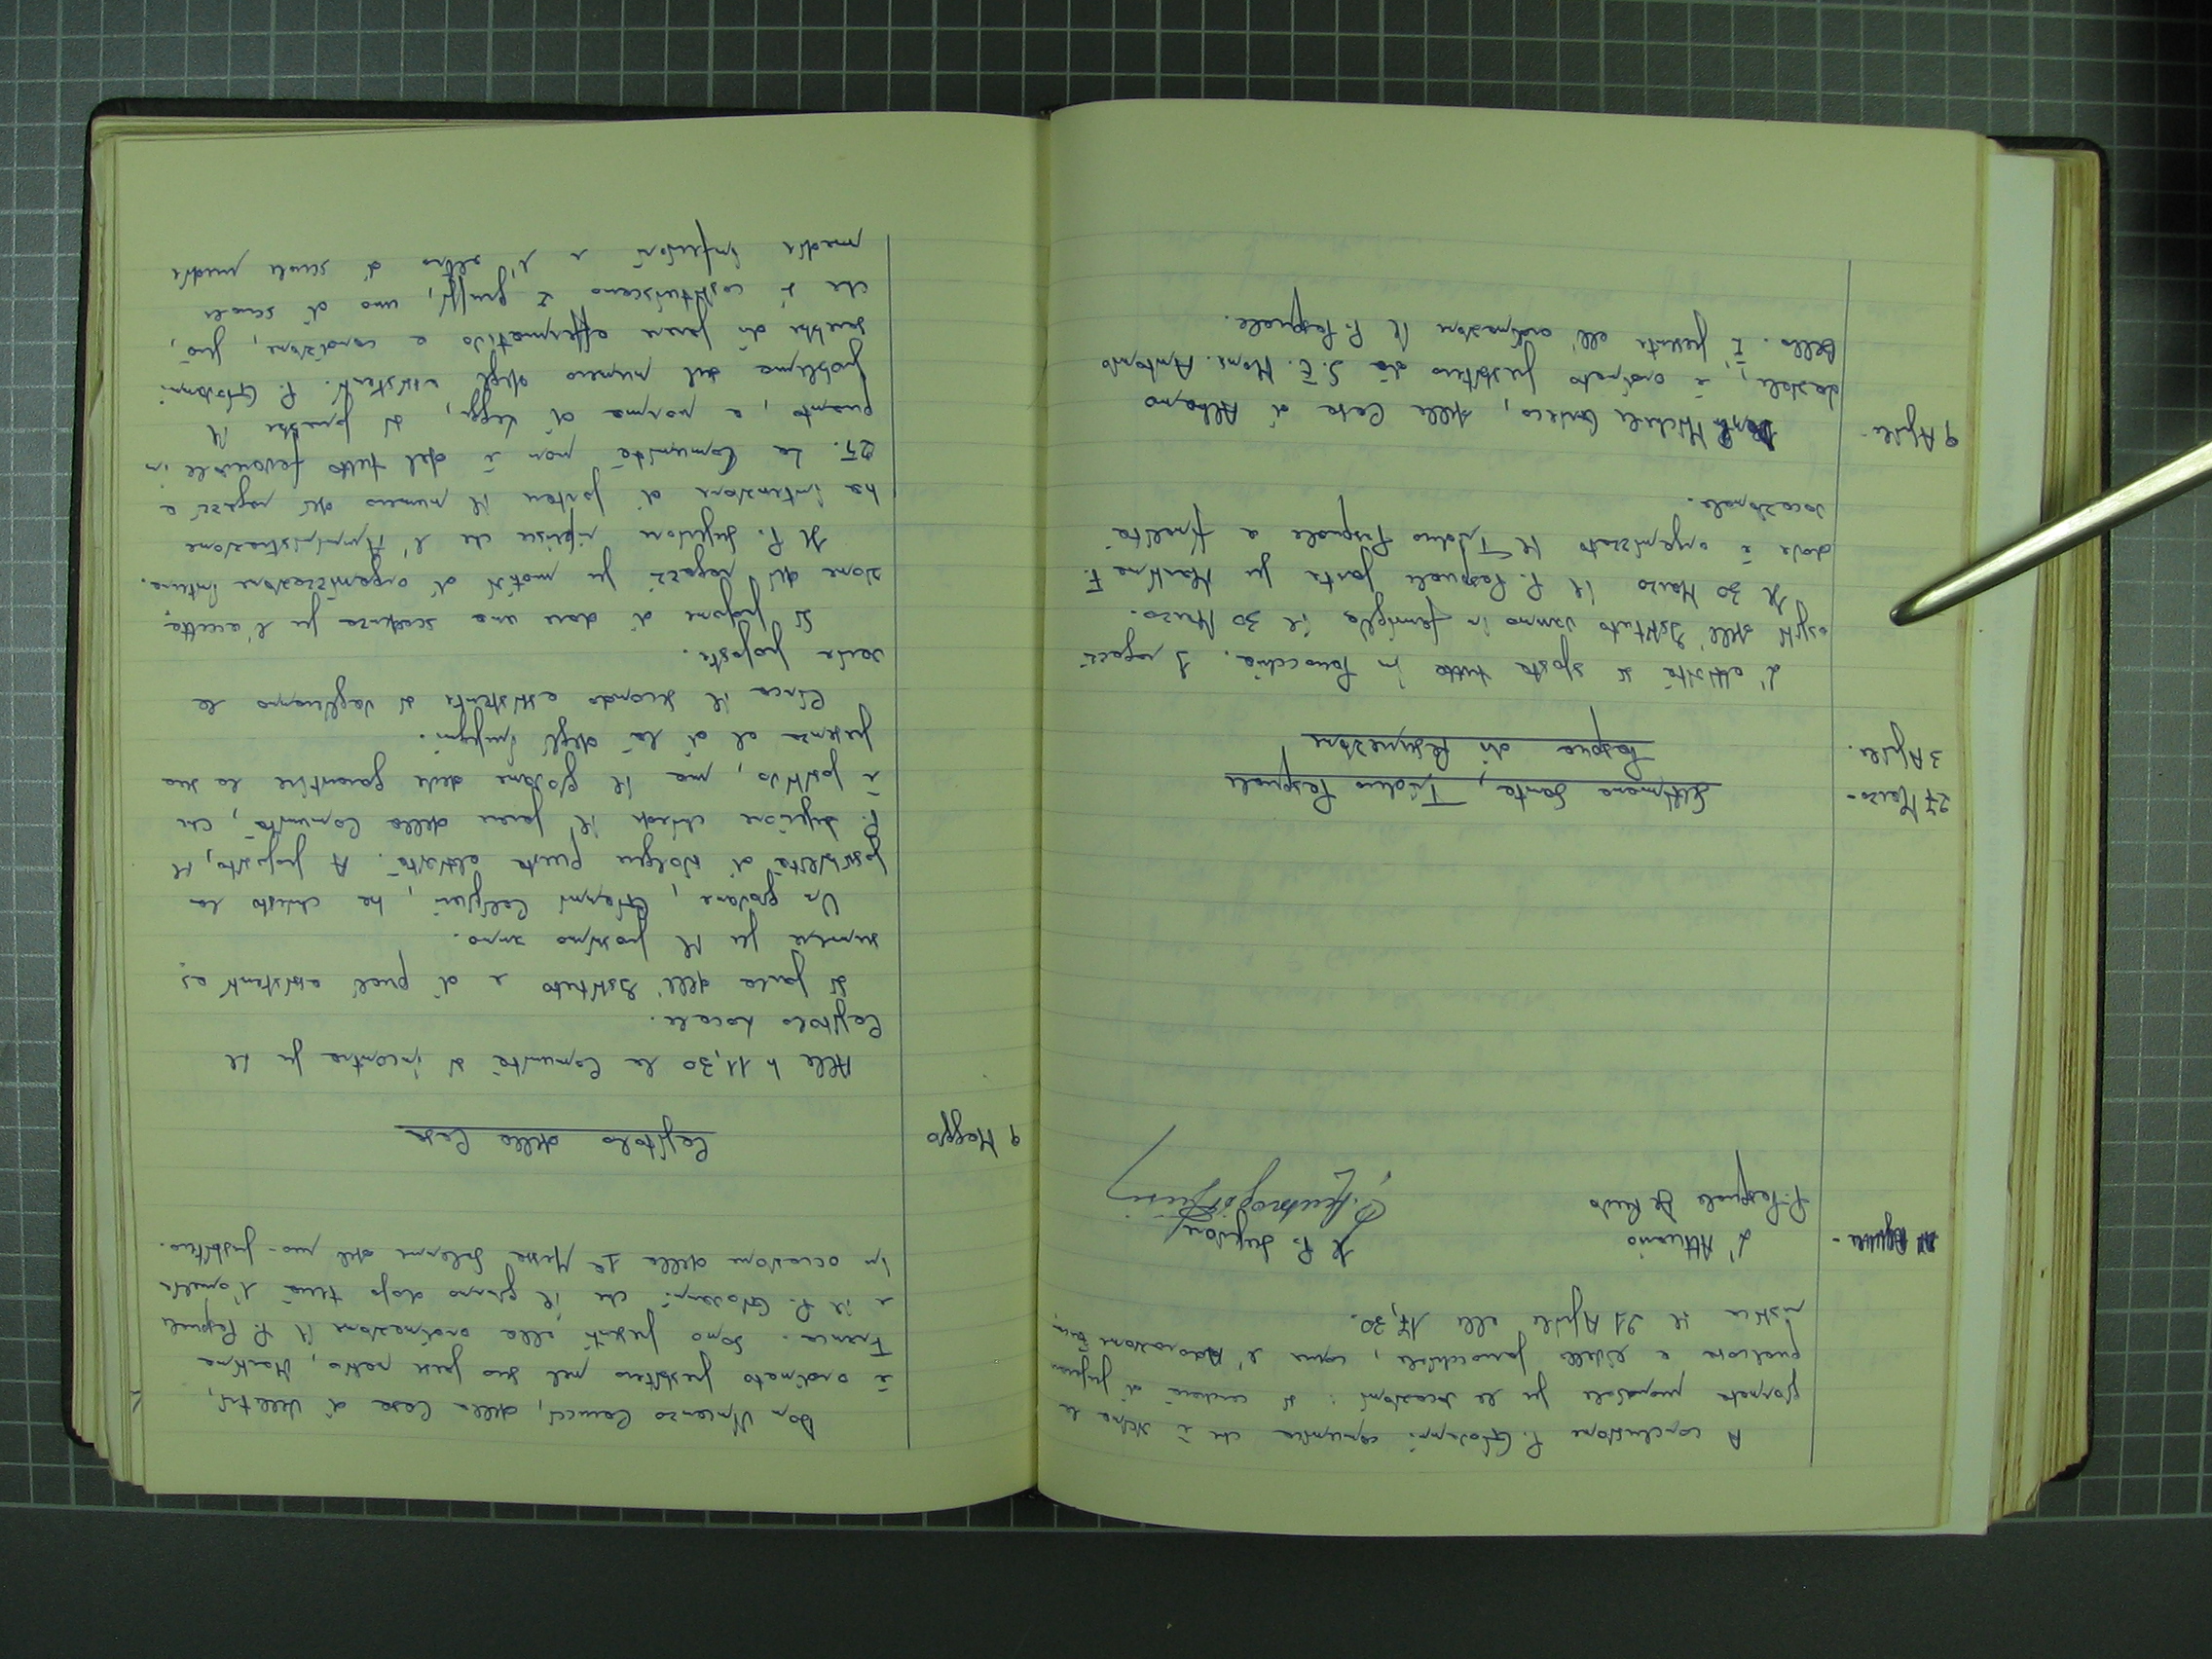 A conclusione P. Giovanni comunica che è vicina la
giornata mondiale per le vocazioni: si cercherà di preparare
qualcosa a livello parrocchiale, come l'Adorazione Euca
ristica il 21 Aprile alle 17,30.
L'Attuario
Il P. Superiore
P. Pasquale Di
27 Marzo -
3 Aprile.
Settimana Santa, Triduo Pasquale
Pasqua di Resurrezione
L'attività si sposta tutta in Parrocchia. I ragazzi
ospiti dell'Istituto vanno in famiglia il 30 Marzo.
Il 30 Marzo il P. Pasquale parte per Martina F.
dove è organizzato il Triduo Pasquale a finalità
vocazionale.
9 Aprile -
Michele, della Casa di Albano
Laziale, è ordinato presbitero da S. E. Mons. Antonio
Bello. È presente all'ordinazione il P. Pasquale.
Don Vincenzo, della Casa di Velletri,
è ordinato presbitero nel suo paese nativo, Martina
Franca. Sono presenti alla ordinazione il P. Pasquale
e il P. Giovanni che il giorno dopo terrà l'omelia
in occasione della 1a Messa Solenne del neo-presbitero.
9 Maggio
Capitolo della Casa
Alle h 11,30 la Comunità si incontra per il
Capitolo Locale.
Si parla dell'Istituto e di quali assistenti as
sumere per il prossimo anno.
Un giovane, Gianni, ha chiesto la
possibilità di svolgere questa attività. A proposito, il
P. Superiore chiede il parere della Comunità, che
è positivo, ma il giovane deve garantire la sua
presenza al di là degli impegni.
Circa il secondo assistente si vaglieranno le
varie proposte.
Si propone di dare una scadenza per l'accetta
zione dei ragazzi per motivi di organizzazione interna.
Il P. Superiore riferisce che l'Amministrazione
ha intenzione di portare il numero dei ragazzi a
25. La Comunità non è del tutto favorevole in
quanto, a norma di legge, si porrebbe il
problema del numero degli assistenti. P. Giovanni
sarebbe di parere affermativo a condizione, però,
che si costituiscano 2 gruppi, uno di scuole
medie inferiori e l'altro di scuole medie